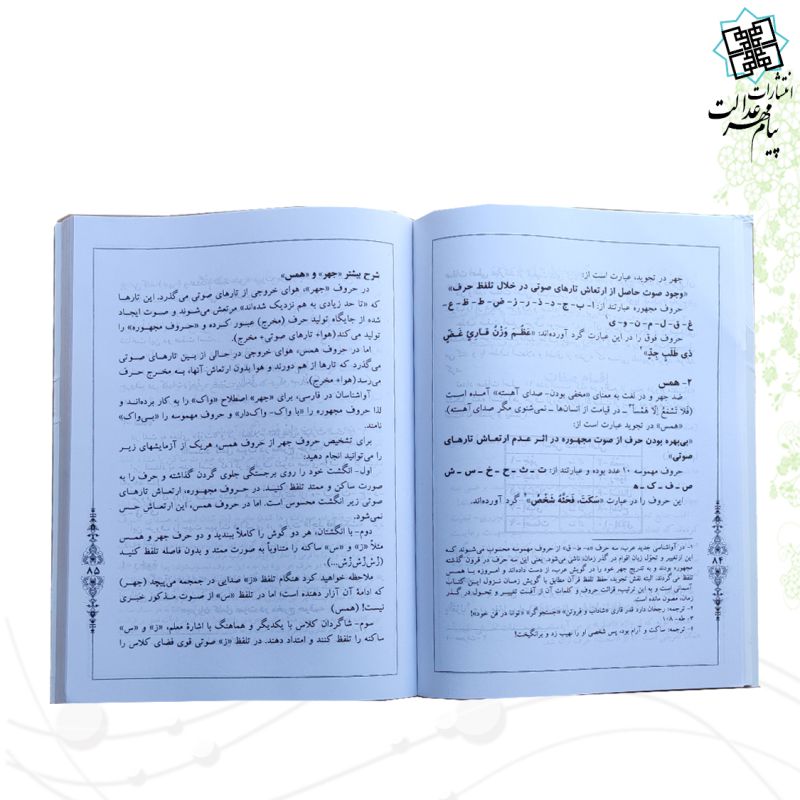 انتشارات
پیام مهر عدالت
جهر در تجوید، عبارت است از:
«وجود صوت حاصل از ارتعاش تارهای صوتی در خلال تلفظ حرف»
حروف مجهوره عبارتند از: ا - ب - ج - د - ذ - ر - ز - ض - ط - ظ - ع -
غ - ق - ل - م - ن - و - ی
حروف فوق را در این عبارت گرد آورده‌اند: «عَظُمَ وَزْنُ قارِئٍ غَضٍّ
ذی طَلَبٍ جِدٍّ» ۲
۲- همس
ضد جهر و در لغت به معنای «مخفی بودن- صدای آهسته» آمده است
(فَلا تَسْمَعُ إلّا هَمْساً ۳ ـ در قیامت از انسان‌ها ـ نمی‌شنوی مگر صدای آهسته).
«همس» در تجوید عبارت است از:
«بی‌بهره بودن حرف از صوت مجهوره در اثر عدم ارتعاش تارهای
صوتی»
حروف مهموسه ۱۰ عدد بوده و عبارتند از: ت - ث - ح - خ - س - ش
ص - ف - ک - ه
این حروف را در عبارت «سَکَتَ، فَحَثَّهُ شَخْصٌ» ۴ گرد آورده‌اند.
۱- در آواشناسی جدید عرب، سه حرف «ء- ط- ق» از حروف مهموسه محسوب می‌شوند که
این ازتغییر و تحوّل زبان اقوام در گذر زمان، ناشی می‌شود. یعنی این سه حرف در قرون گذشته
مجهوره بودند و به تدریج جهر خود را در گویش عرب، از دست داده‌اند و امروزه با همس
تلفظ می‌گردند. البته نقش تجوید، حفظ تلفظ قرآن مطابق با گویش زمان نزول این کتاب
آسمانی است و به این ترتیب قرائت حروف و کلمات آن از آفت تغییر و تحول در گذر
زمان، مصون مانده است.
۲- ترجمه: رجحان دارد قدر قاری «شاداب و فروتن» «جستجوگر» «توانا در فن خود»!
۳: طه- ۱۰۸
۴- ترجمه: ساکت و آرام بود، پس شخصی او را نهیب زد و برانگیخت!
۸۴
شرح بیشتر «جهر» و «همس»
در حروف «جهر»، هوای خروجی از تارهای صوتی می‌گذرد. این تارها
که «تا حد زیادی به هم نزدیک شده‌اند» مرتعش می‌شوند و صوت ایجاد
شده از جایگاه تولید حرف (مخرج) عبور کرده و «حروف مجهوره» را
تولید می‌کند (هوا+ تارهای صوتی+ مخرج).
اما در حروف همس، هوای خروجی در حالی از بین تارهای صوتی
می‌گذرد که تارها از هم دورند و هوا بدون ارتعاش آنها، به مخرج حرف
می‌رسد (هوا+ مخرج).
آواشناسان در فارسی، برای «جهر» اصطلاح «واک» را به کار برده‌اند و
لذا حروف مجهوره را «با واک- واک‌دار» و حروف مهموسه را «بی‌واک»
نامند.
برای تشخیص حروف جهر از حروف همس، هریک از آزمایشهای زیر
را می‌توانید انجام دهید:
اول- انگشت خود را روی برجستگی جلوی گردن گذاشته و حرف را به
صورت ساکن و ممتد تلفظ کنید. در حروف مجهوره، ارتعاش تارهای
صوتی زیر انگشت محسوس است. اما در حروف همس، این ارتعاش حس
نمی‌شود.
دوم- با انگشتان، هر دو گوش را کاملاً ببندید و دو حرف جهر و همس
مثلاً «ز» و «س» ساکنه را متناوباً به صورت ممتد و بدون فاصله تلفظ کنید
(زْسْ‌زْسْ‌زْسْ...).
ملاحظه خواهید کرد هنگام تلفظ «ز» صدایی در جمجمه می‌پیچد (جهر)
که ادامهٔ آن آزار دهنده است! اما در تلفظ «س» از صوت مذکور خبری
نیست! (همس)
سوم- شاگردان کلاس با یکدیگر و هماهنگ با اشارهٔ معلم، «ز» و «س»
ساکنه را تلفظ کنند و امتداد دهند. در تلفظ «ز» صوتی قوی فضای کلاس را
۸۵